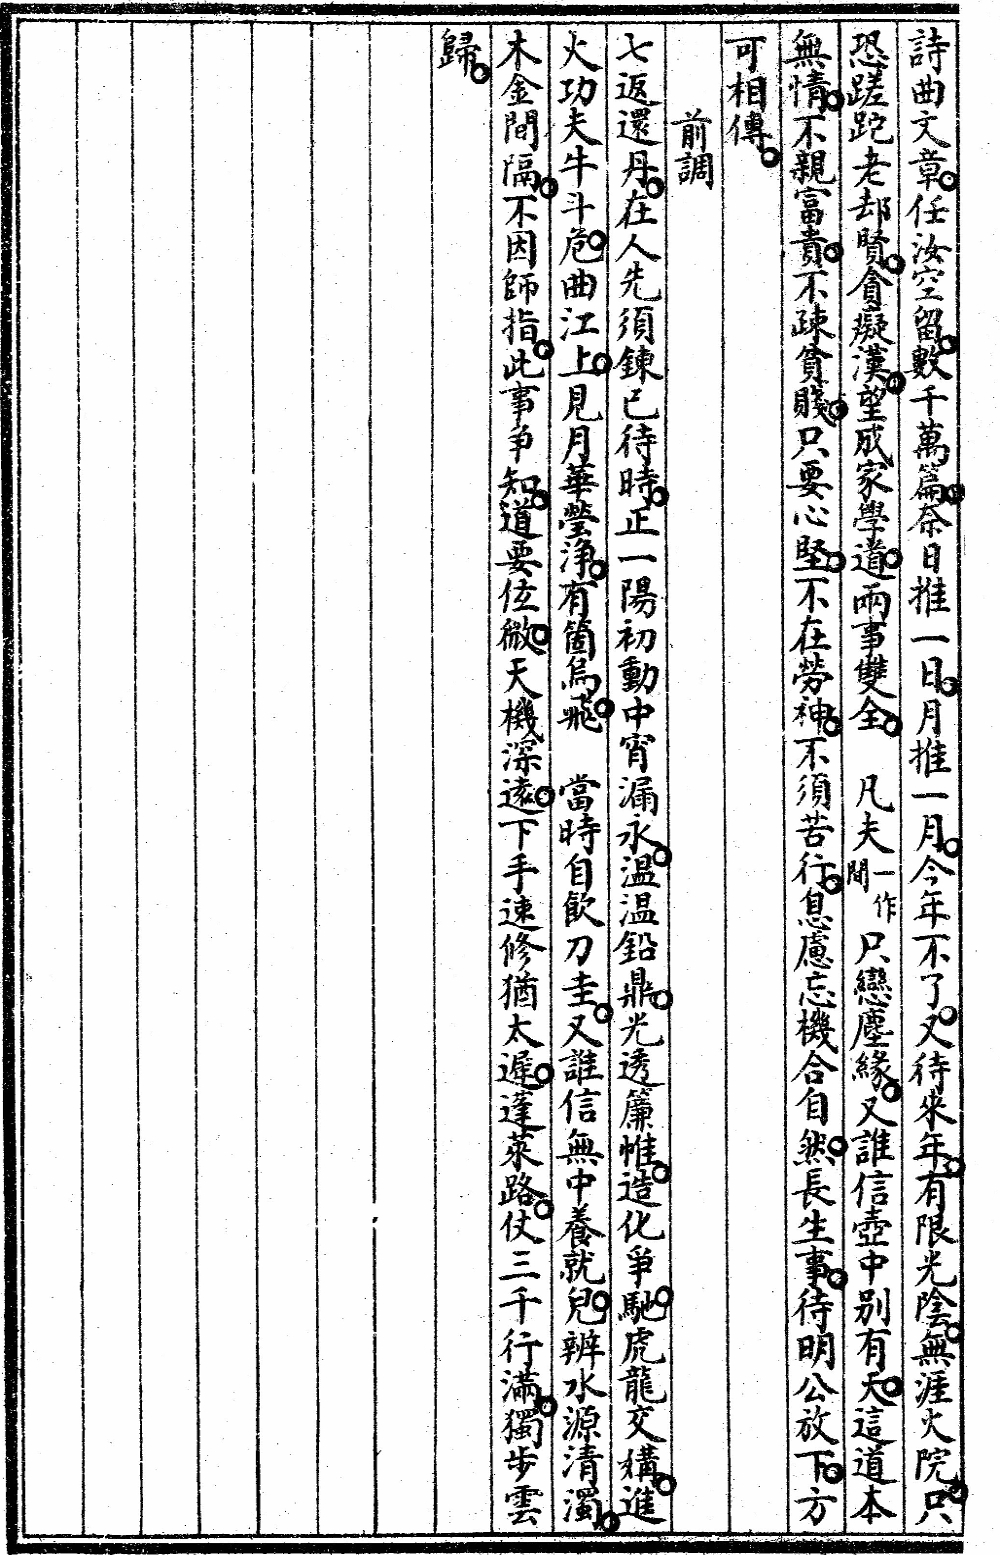 詩曲文章任汝空留數千萬篇奈日推一日月推一月今年不了又待來年有限光陰無涯火院只
恐蹉跎老却賢貪癡漢望成家學道兩事雙全　凡夫一作間只戀塵緣又誰信壺中别有天這道本
無情不親富貴不疎貧賤只要心堅不在勞神不須苦行息慮忘機合自然長生事待明公放下方
可相傳
前調
七返還丹在人先須鍊已待時正一陽初動中宵漏永温温鉛鼎光透簾帷造化爭馳虎龍交媾進
火功夫牛斗危曲江上見月華瑩浄有箇烏飛　當時自飲刀圭又誰信無中養就兒辨水源清濁
木金間隔不因師指此事争知道要位微天機深遠下手速修猶太遲蓬萊路仗三千行滿獨步雲
歸